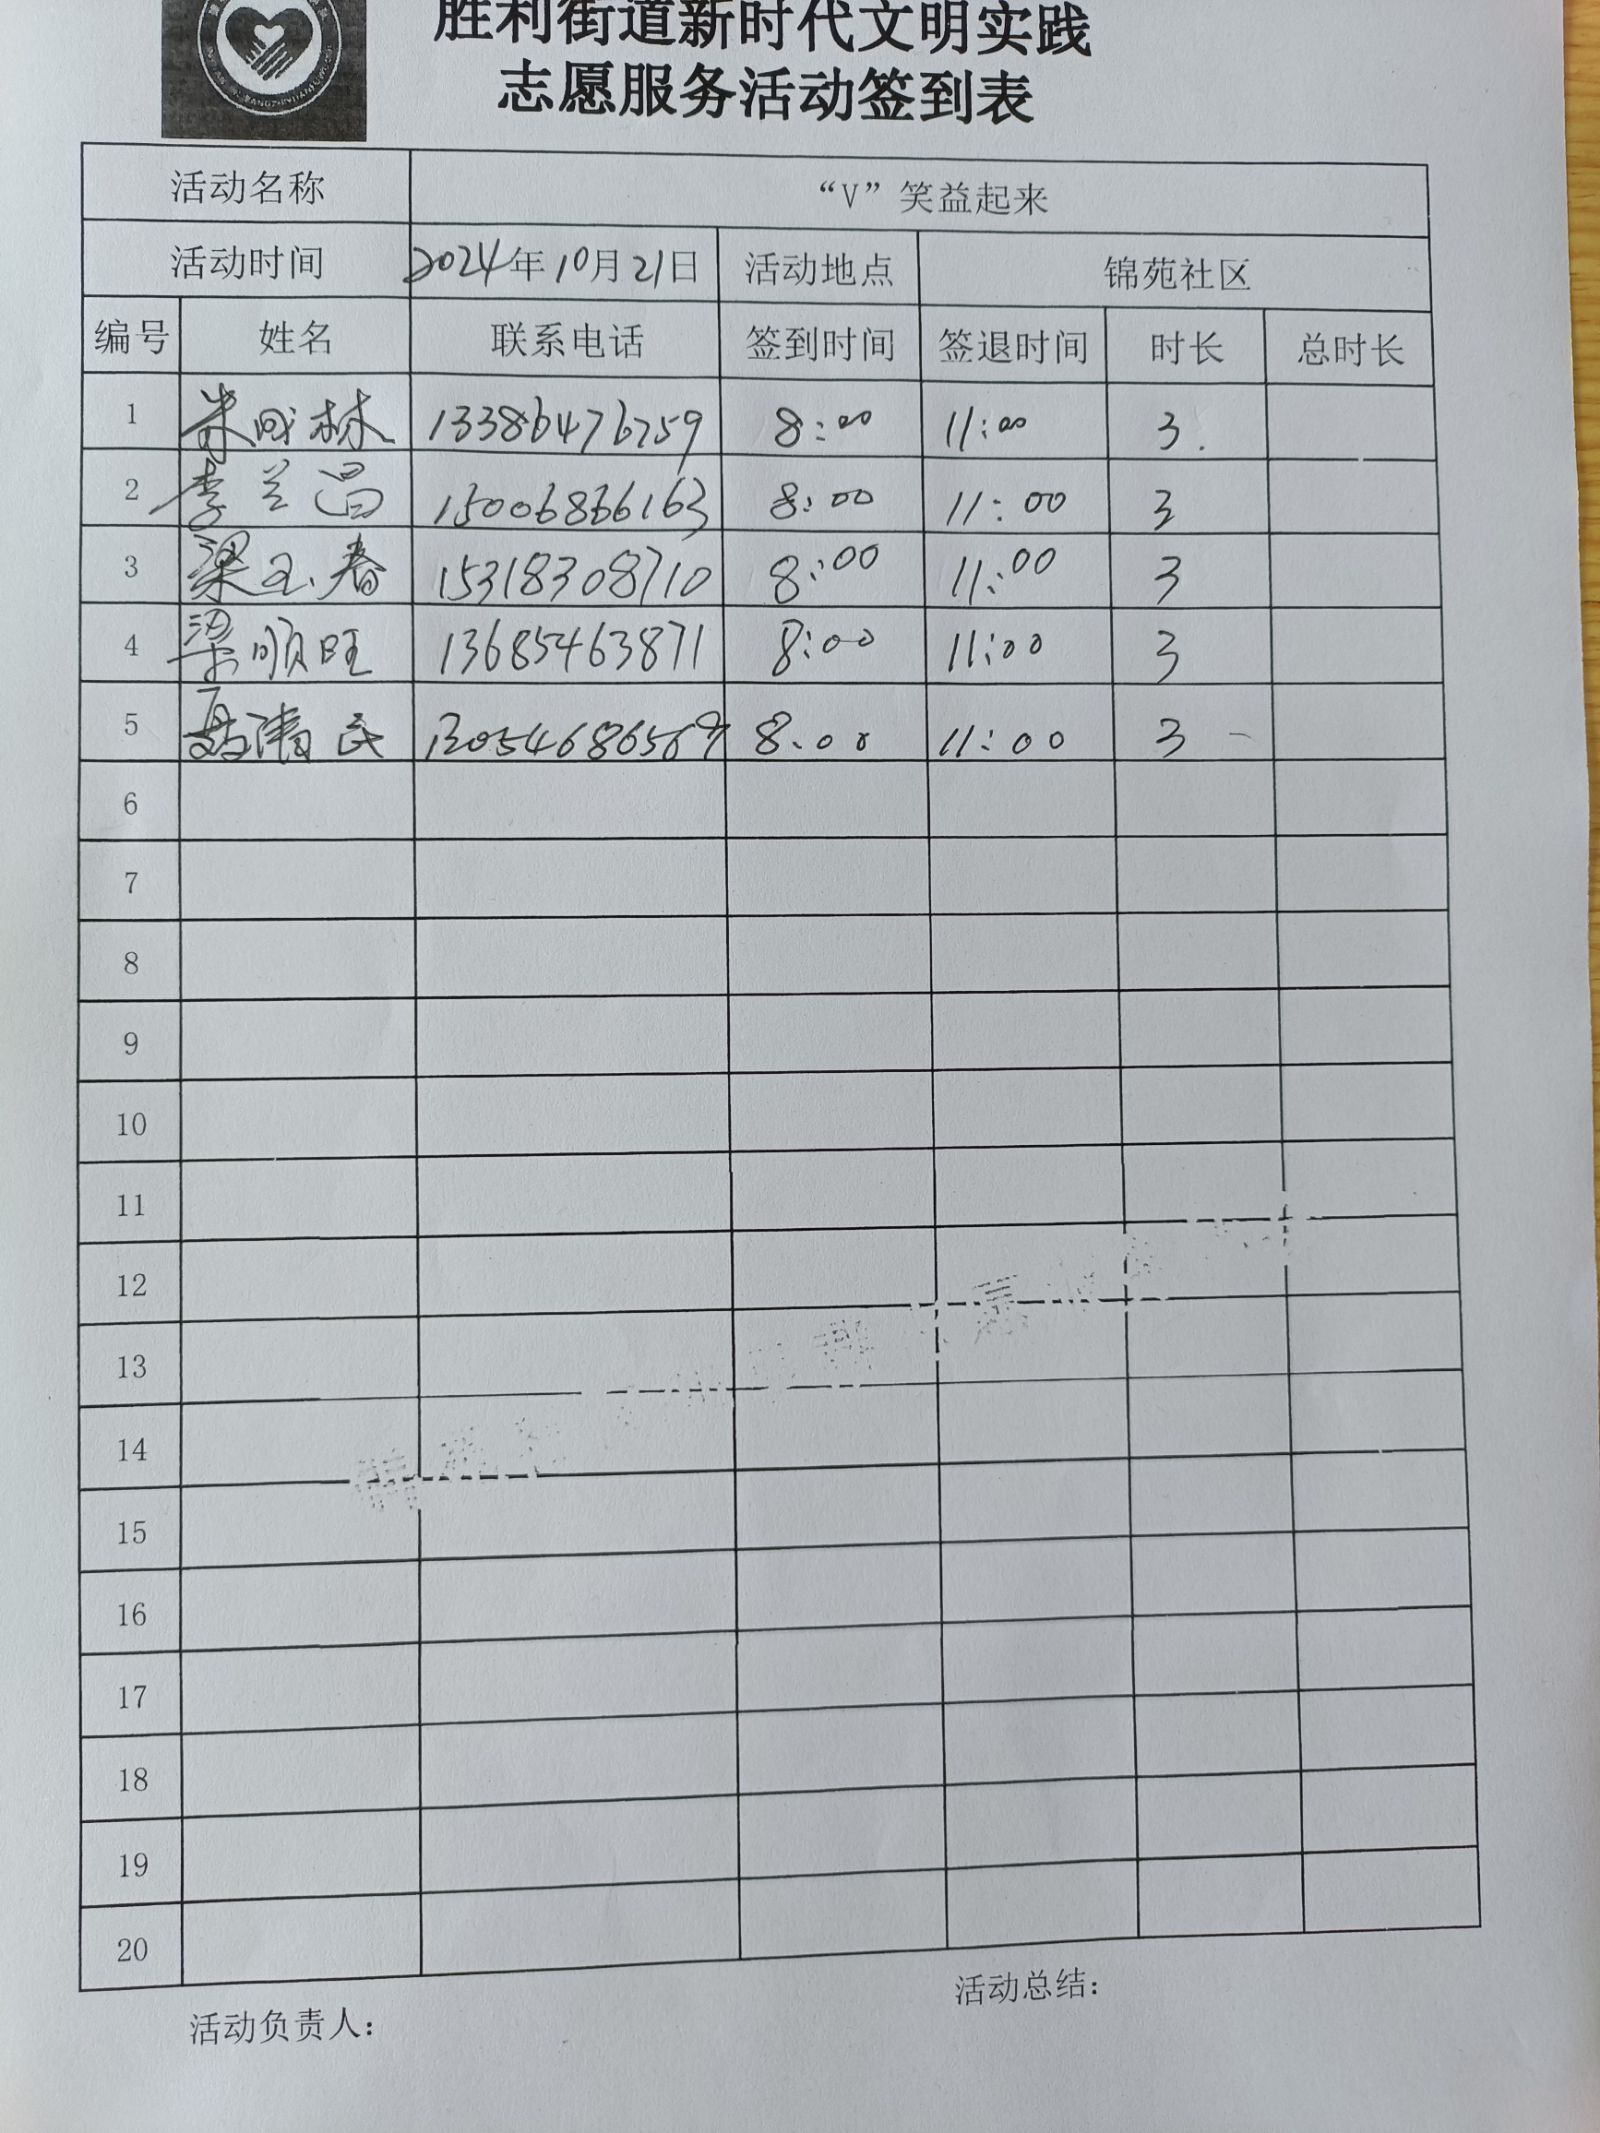 胜利街道新时代文明实践
志愿服务活动签到表
活动名称 “V”笑益起来
活动时间 2024年10月21日 活动地点 锦苑社区
编号 姓名 联系电话 签到时间 签退时间 时长 总时长
1 朱成林 13386476759 8:00 11:00 3.
2 李兰昌 15006866163 8:00 11:00 3
3 梁玉春 15318308710 8:00 11:00 3
4 梁顺旺 13685463871 8:00 11:00 3
5 清民 13054686569 8:00 11:00 3
6
7
8
9
10
11
12
13
14
15
16
17
18
19
20
活动负责人: 活动总结: